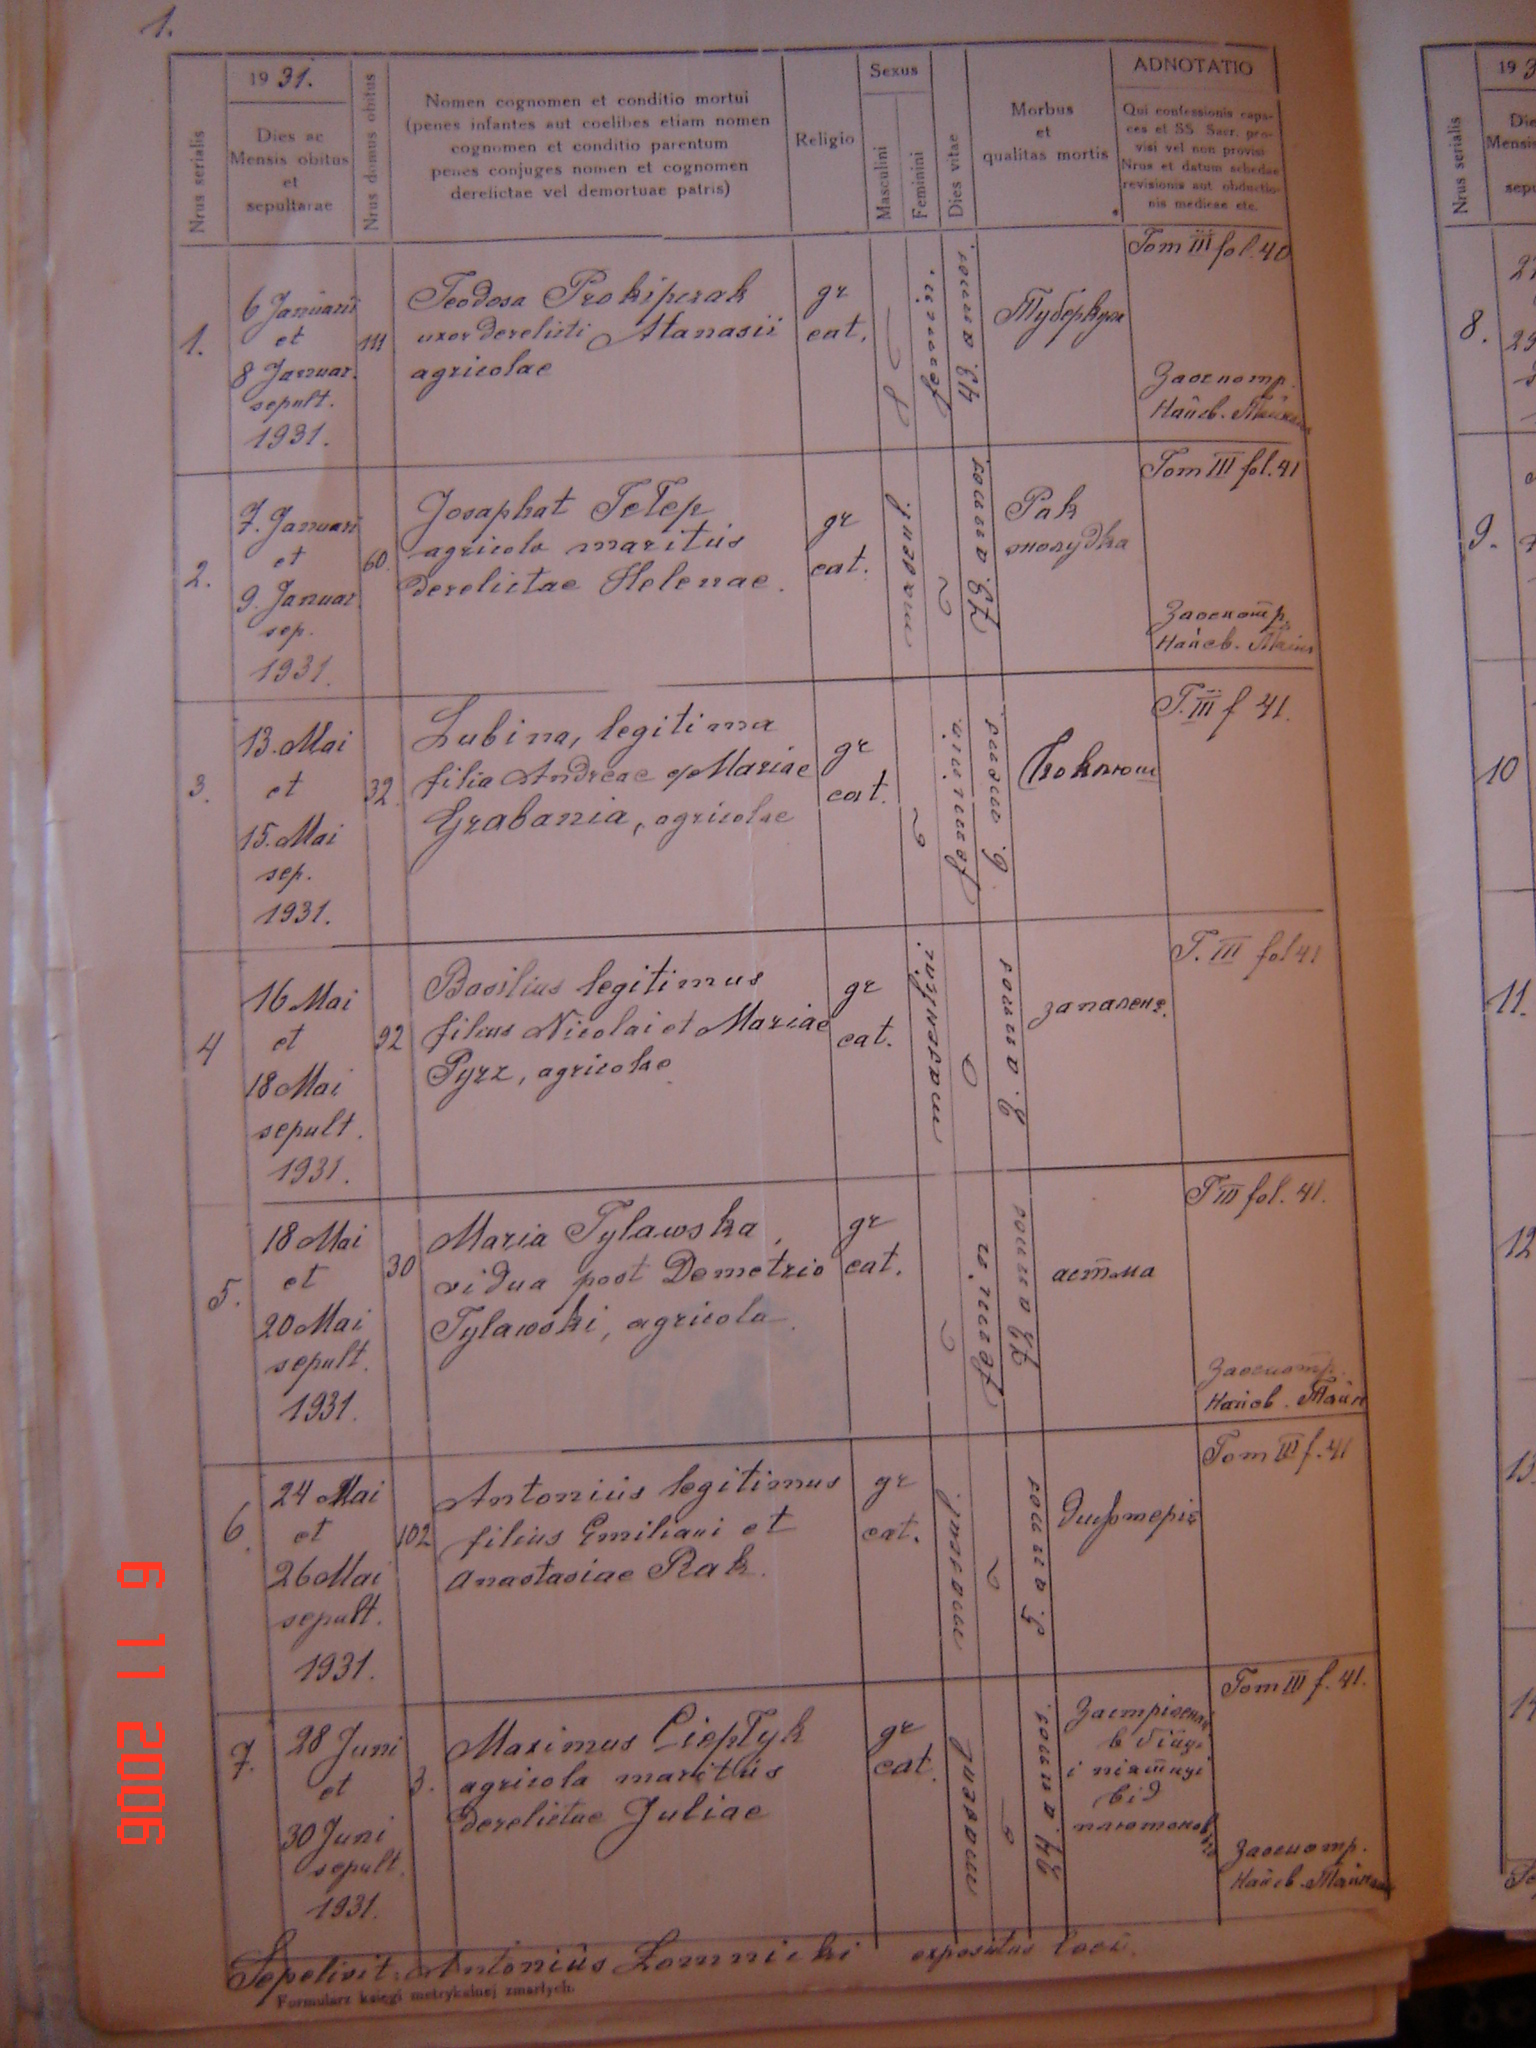 1.
1931.
Nrus serialis
Dies ac
Mensis obitus
et
sepulturae
Nrus domus obitus
Nomen cognomen et conditio mortui
(penes infantes aut coelibes etiam nomen
cognomen et conditio parentum
penes conjuges nomen et cognomen
derelictae vel demortuae patris)
Religio
Sexus
Masculini
Feminini
Dies vitae
Morbus
et
qualitas mortis
ADNOTATIO
Qui confessionis capa-
ces et SS. Sacr. pro-
visi vel non provisi
Nrus et datum schedae
revisionis aut obductio-
nis medicae etc.
1.
6 Januarii
et
8 Januar.
sepult.
1931.
111
Teodosa Prokipczak
uxor derelicti Atanasii
agricolae
gr
cat.
feminin.
43. annos
Туберкул
Tom III fol. 40
Заосмотр.
Найсв. Тайнами
2.
7. Januari
et
9. Januar
sep.
1931.
60.
Josaphat Telep
agricola maritus
derelictae Helenae.
gr
cat.
masculi
73. annos
Рак
жолудка
Tom III fol. 41
Заосмотр.
Найсв. Тайн
3.
13. Mai
et
15. Mai
sep.
1931.
32.
Lubina, legitima
filia Andreae et Mariae
Grabania, agricolae
gr
cat.
feminin.
6. annos
Коклюш
T. III f 41.
4
16 Mai
et
18 Mai
sepult.
1931.
92
Basilius legitimus
filius Nicolai et Mariae
Pyrz, agricolae
gr
cat.
masculin.
3. annos
запаленє.
T. III fol 41
5.
18 Mai
et
20 Mai
sepult.
1931.
30
Maria Tylawska,
vidua post Demetrio
Tylawski, agricola.
gr
cat.
feminin
73 annos
астма
T III fol. 41.
Заосмотр.
Найсв. Тайн
6.
24 Mai
et
26 Mai
sepult.
1931.
102
Antonius legitimus
filius Emiliani et
Anastasiae Rak.
gr
cat.
masculi
5. annos
дифтерія
Tom III f. 41
7.
28 Juni
et
30 Juni
sepult.
1931.
3.
Maximus Cieptyk
agricola maritus
derelictae Juliae
gr
cat.
masculi
24. annos
Застрілений
в бійці
і піятиці
від
Tom III f. 41.
Заосмотр.
Найсв. Тайнами
Sepelivit: Antonius Lomnicki expositus loci.
Formularz księgi metrykalnej zmarłych.
Nrus serialis
19 3
Die
Mensis
sepu
8.
9.
10
11.
12
13.
14
6 11 2006